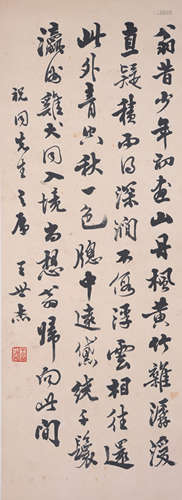 翁昔少年初畫山丹楓黃竹雜潺湲
直疑積雨得深澗不假浮雲相往還
此外青山秋一色牕中遠黛繞千鬟
瀛洲雞犬同入境尚想翁歸向此間
祝同先生之屬 王世杰